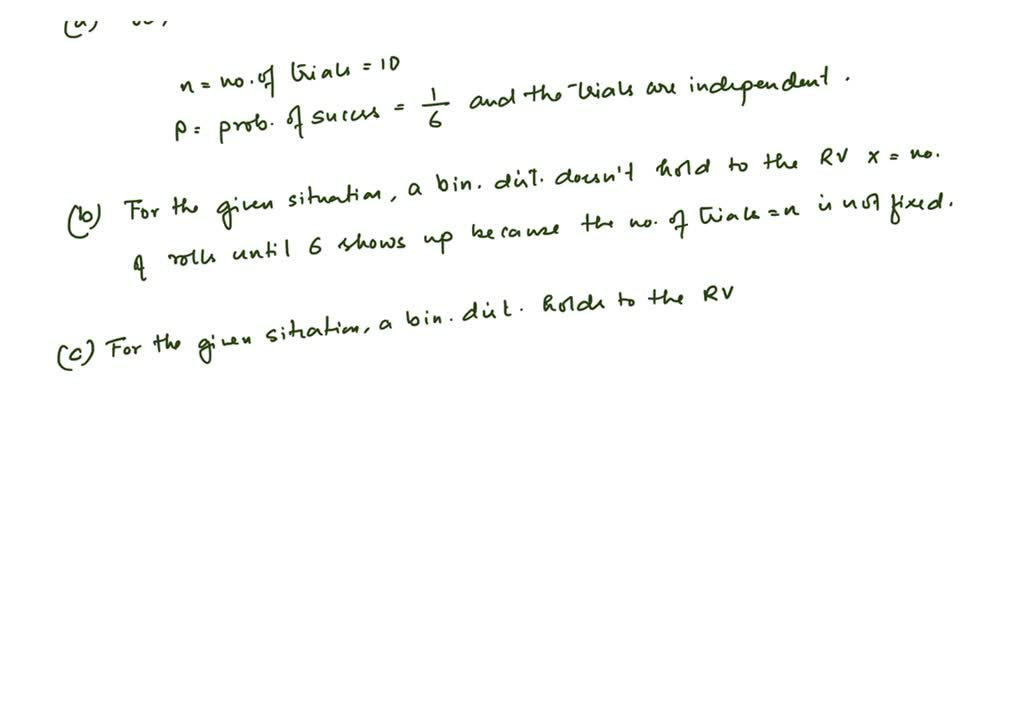 (a)
n = no. of trials = 10
p = prob. of succss = 1/6 and the trials are independent.
(b) For the given situation, a bin. dist. doesn't hold to the RV x = no.
of rolls until 6 shows up because the no. of trials = n is not fixed.
(c) For the given sitation, a bin. dist. holds to the RV